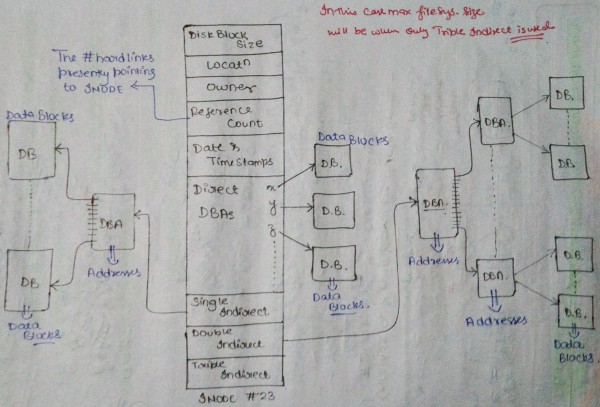 In this case max file sys. size
will be when only Triple Indirect is used
The # hardlinks
presently pointing
to INODE
Disk Block
Size
Locatn
Owner
Reference
Count
Date &
Time Stamps
Direct
DBAs
x
y
z
Single
Indirect
Double
Indirect
Triple
Indirect
INODE #23
Data Blocks
DB
DB
Data
Blocks
DBA
Addresses
Data Blocks
D.B.
D.B.
D.B.
Data
Blocks.
DBA.
Addresses
DBA.
DBA.
Addresses
DB.
DB
DB.
D.B.
Data
Blocks.